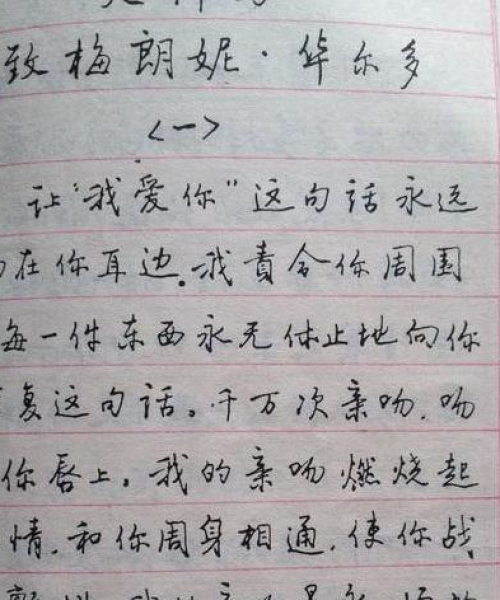 致梅朗妮·华尔多
<一>
让“我爱你”这句话永远
在你耳边。我责令你周围
每一件东西永无休止地向你
复这句话。千万次亲吻,吻
你唇上。我的亲吻燃烧起
情,和你周身相通,使你战